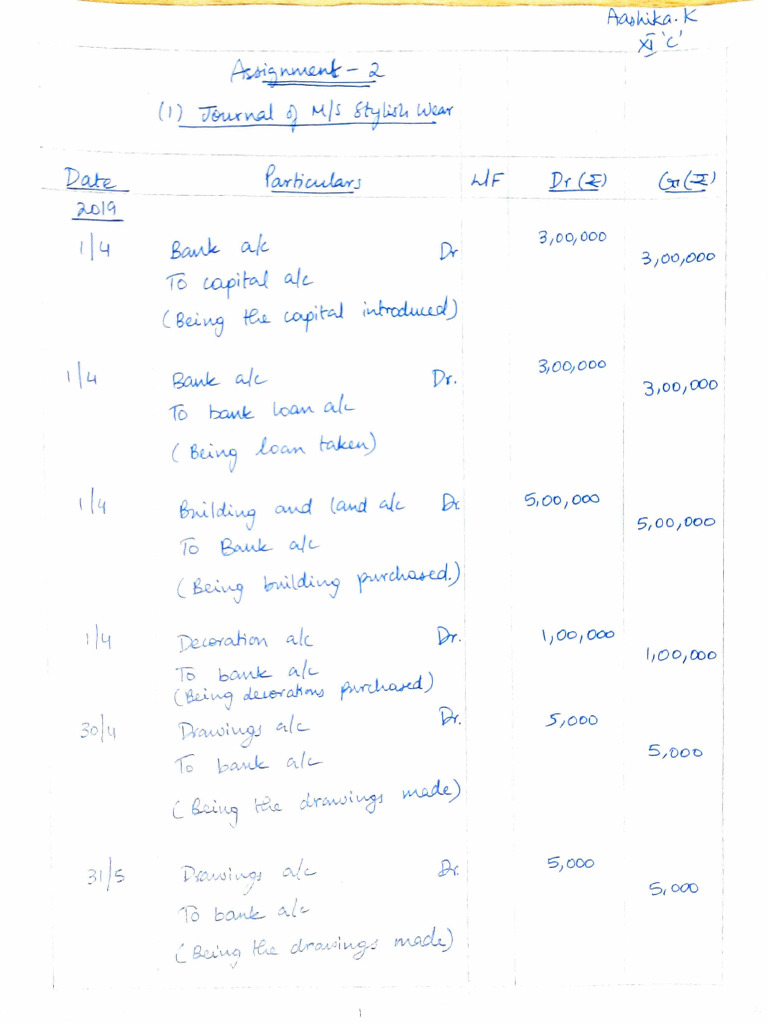 Aashika.K
XI 'C'
Assignment - 2
(1) Journal of M/S Stylish Wear
Date Particulars L/F Dr (₹) Cr (₹)
2019
1/4 Bank a/c Dr 3,00,000
To capital a/c 3,00,000
(Being the capital introduced)
1/4 Bank a/c Dr. 3,00,000
To bank loan a/c 3,00,000
(Being loan taken)
1/4 Building and land a/c Dr 5,00,000
To Bank a/c 5,00,000
(Being building purchased.)
1/4 Decoration a/c Dr. 1,00,000
To bank a/c 1,00,000
(Being decorations purchased)
30/4 Drawings a/c Dr. 5,000
To bank a/c 5,000
(Being the drawings made)
31/5 Drawings a/c Dr. 5,000
To bank a/c 5,000
(Being the drawings made)
1